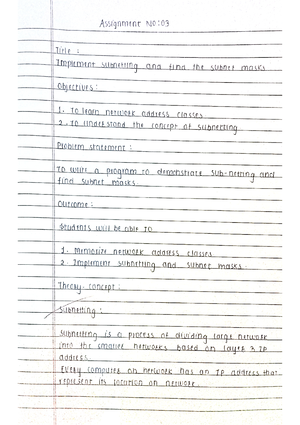 Assignment No:03
Title :
Implement subnetting and find the subnet masks
Objectives :
1. To learn network address classes
2. To understand the concept of subnetting
Problem statement :
To write a program to demonstrate sub-netting and
find subnet masks
Outcome :
Students will be able to
1. Memorize network address classes
2. Implement subnetting and subnet masks.
Theory concept :
Subnetting :
Subnetting is a process of dividing large network
into the smaller networks based on layer 3 IP
address.
Every computer on network has an IP address that
represent its location on network.